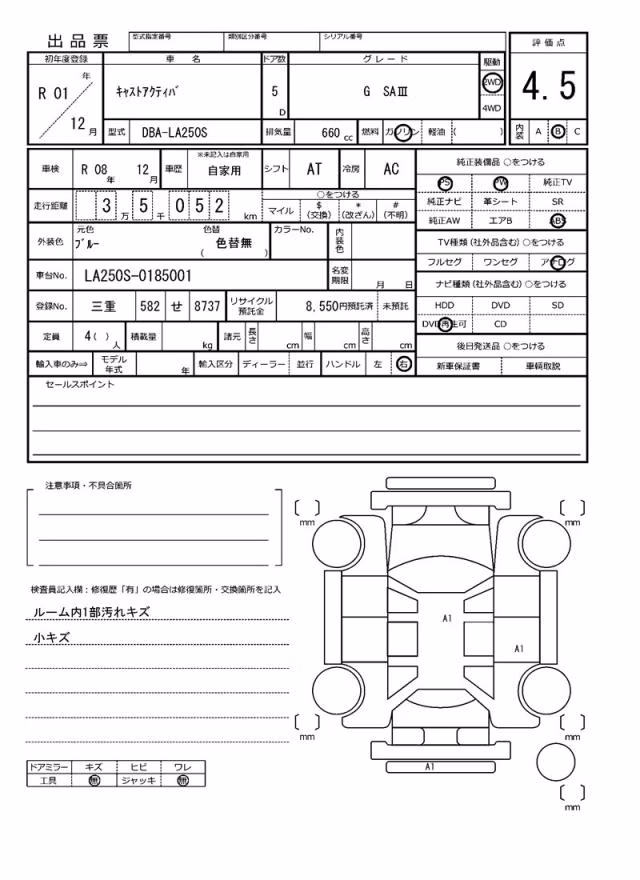 出品票 型式指定番号 類別区分番号 シリアル番号 評価点
初年度登録 車名 ドア数 グレード 駆動
R 01 年 キャストアクティバ 5 D G SAⅢ 2WD 4.5
12 月 4WD
型式 DBA-LA250S 排気量 660 cc 燃料 ガソリン 軽油 ( ) 内装 A B C
車検 R 08 年 12 月 車歴 ※未記入は自家用 自家用 シフト AT 冷房 AC
走行距離 3 万 5 千 0 5 2 km ○をつける
マイル $ (交換) * (改ざん) # (不明)
外装色 元色 ブルー 色替 ( 色替無 ) カラーNo. 内装色
車台No. LA250S-0185001 名変期限 月 日
登録No. 三重 582 せ 8737 リサイクル預託金 8,550円預託済 未預託
定員 4 ( ) 人 積載量 kg 諸元 長さ cm 幅 cm 高さ cm
輸入車のみ⇒ モデル年式 年 輸入区分 ディーラー 並行 ハンドル 左 右
純正装備品 ○をつける
PS PW 純正TV
純正ナビ 革シート SR
純正AW エアB ABS
TV種類 (社外品含む) ○をつける
フルセグ ワンセグ アナログ
ナビ種類 (社外品含む) ○をつける
HDD DVD SD
DVD再生可 CD
後日発送品 ○をつける
新車保証書 車輌取説
セールスポイント
注意事項・不具合箇所
検査員記入欄：修復歴「有」の場合は修復箇所・交換箇所を記入
ルーム内1部汚れキズ
小キズ
ドアミラー キズ ヒビ ワレ
工具 無 ジャッキ 無
mm mm
A1
A1
mm mm
A1
mm